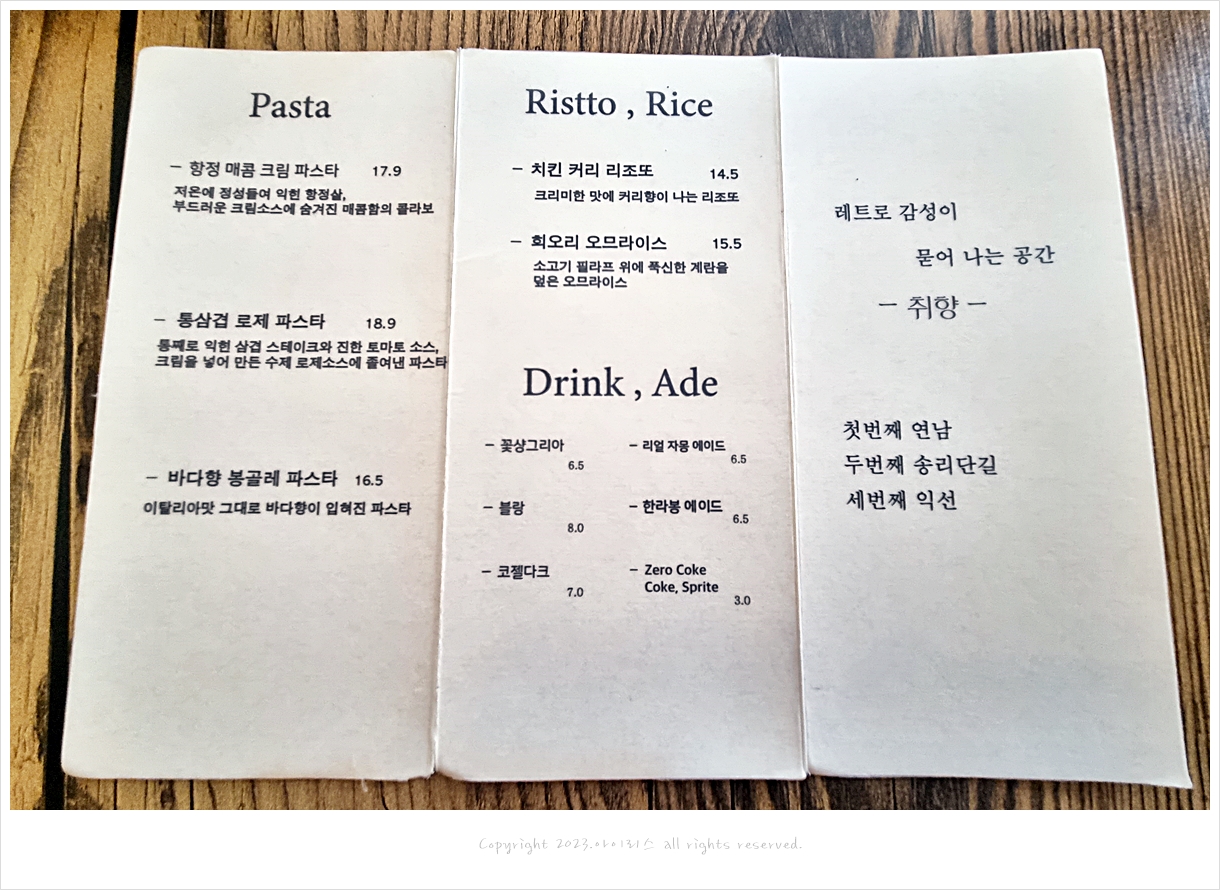 Pasta
– 항정 매콤 크림 파스타 17.9
저온에 정성들여 익힌 항정살,
부드러운 크림소스에 숨겨진 매콤함의 콜라보
– 통삼겹 로제 파스타 18.9
통째로 익힌 삼겹 스테이크와 진한 토마토 소스,
크림을 넣어 만든 수제 로제소스에 졸여낸 파스타
– 바다향 봉골레 파스타 16.5
이탈리아맛 그대로 바다향이 입혀진 파스타
Ristto , Rice
– 치킨 커리 리조또 14.5
크리미한 맛에 커리향이 나는 리조또
– 회오리 오므라이스 15.5
소고기 필라프 위에 푹신한 계란을
덮은 오므라이스
Drink , Ade
– 꽃샹그리아 6.5
– 블랑 8.0
– 코젤다크 7.0
– 리얼 자몽 에이드 6.5
– 한라봉 에이드 6.5
– Zero Coke
Coke, Sprite 3.0
레트로 감성이
묻어 나는 공간
– 취향 –
첫번째 연남
두번째 송리단길
세번째 익선
Copyright 2023.아이리스 all rights reserved.